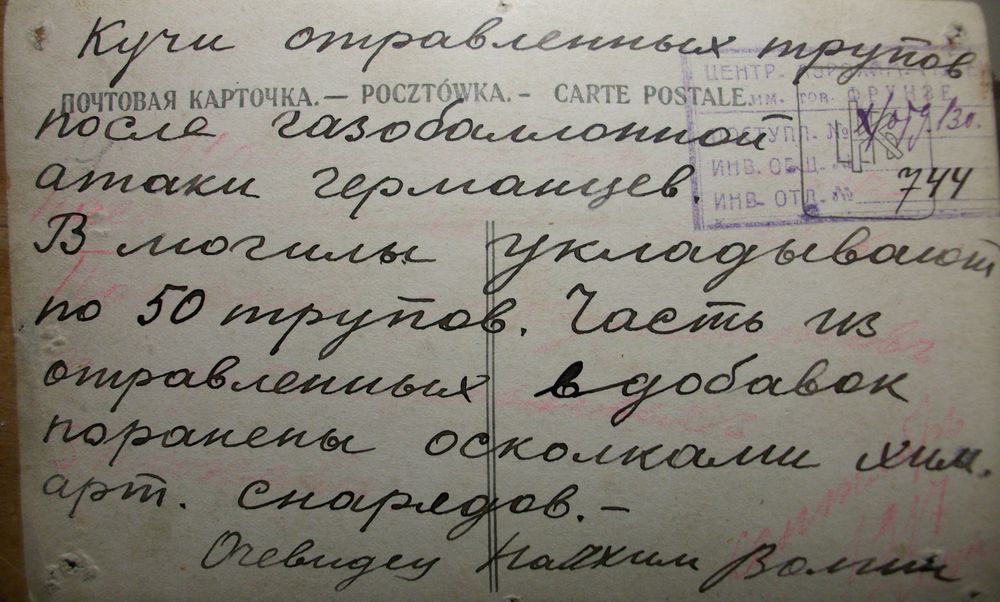 Кучи отравленных трупов
ПОЧТОВАЯ КАРТОЧКА.— POCZTÓWKA.- CARTE POSTALE.
после газобаллонной
атаки германцев.
В могилы укладывают
по 50 трупов. Часть из
отравленных вдобавок
поранены осколками хим.
арт. снарядов.—
Очевидец
ЦЕНТР.
ИМ. тов. ФРУНЗЕ
ПОСТУПЛ. №
ИНВ. ОБЩ. №
ИНВ. ОТД. №
744